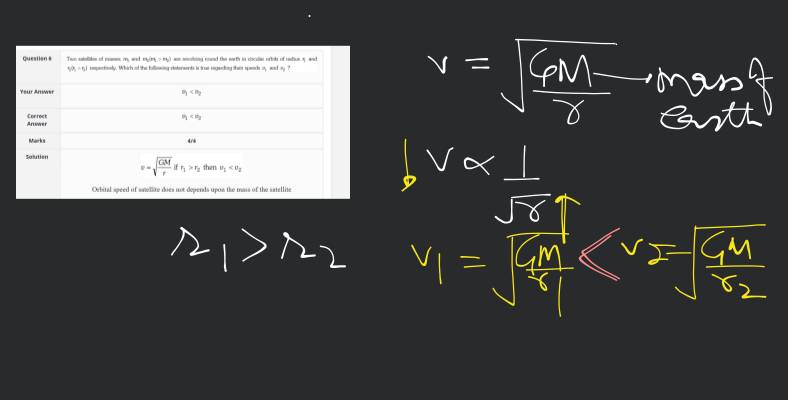 Question 6
Two satellites of masses m₁ and m₂(m₁ > m₂) are revolving round the earth in circular orbits of radius r₁ and
r₂(r₁ > r₂) respectively. Which of the following statements is true regarding their speeds υ₁ and υ₂ ?
Your Answer
υ₁ < υ₂
Correct
Answer
υ₁ < υ₂
Marks
4/4
Solution
υ = √(GM/r) if r₁ > r₂ then υ₁ < υ₂
Orbital speed of satellite does not depends upon the mass of the satellite
r₁ > r₂
v = √(GM/r) → mass of
earth
↓ v ∝ 1/√r ↑
v₁ = √(GM/r₁) < v₂ = √(GM/r₂)